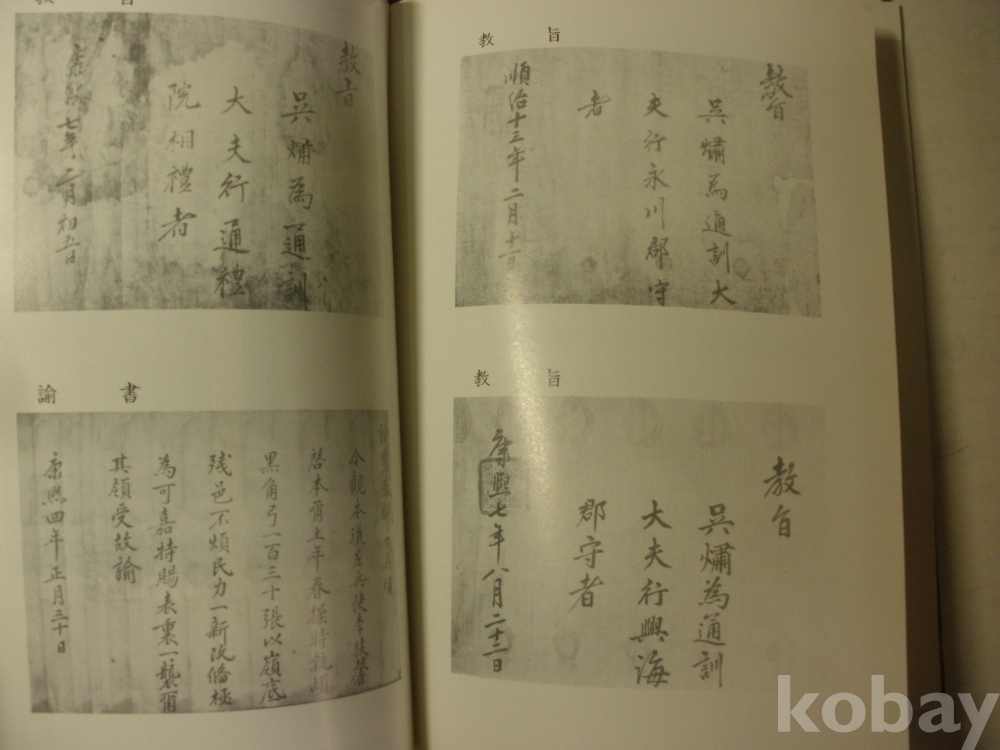 教旨
教旨
吳爌為通訓
大夫行通禮
院相禮者
康熙七年二月初五日
諭書
今觀本道左兵使李枝馨
啓本爾上年春操時
黑角弓一百三十張以嶺底
残邑不煩民力一新改備極
為可嘉特賜表裏一襲爾
其領受故諭
康熙四年正月三十日
教旨
教旨
吳爌為通訓大
夫行永川郡守
者
順治十三年二月十一日
教旨
教旨
吳爌為通訓
大夫行興海
郡守者
康熙七年八月二十二日
kobay